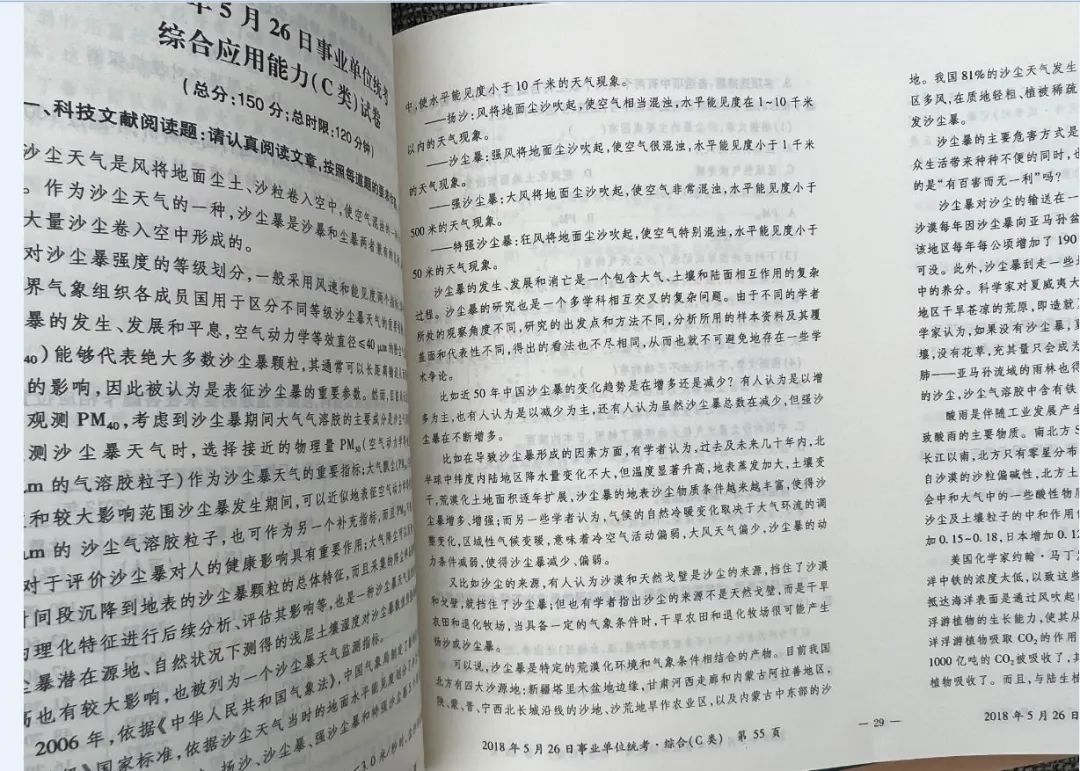 年5月26日事业单位统考
综合应用能力(C类)试卷
(总分:150分;总时限:120分钟)
一、科技文献阅读题:请认真阅读文章,按照每道题的要求作答。
沙尘天气是风将地面尘土、沙粒卷入空中,使空气混浊的
。作为沙尘天气的一种,沙尘暴是沙暴和尘暴两者兼有的
大量沙尘卷入空中形成的。
对沙尘暴强度的等级划分,一般采用风速和能见度两个指标
界气象组织各成员国用于区分不同等级沙尘天气的
暴的发生、发展和平息,空气动力学等效直径≤40 μm的
40)能够代表绝大多数沙尘暴颗粒,其通常可以长距离
的影响,因此被认为是表征沙尘暴的重要参数。然而,目前
观测PM40,考虑到沙尘暴期间大气气溶胶的主要成分是沙尘
测沙尘暴天气时,选择接近的物理量PM50(空气动力学
μm的气溶胶粒子)作为沙尘暴天气的重要指标;大气飘尘(PM
和较大影响范围沙尘暴发生期间,可以近似地表征空气动力学
μm的 沙尘气溶胶粒子,也可作为另一个补充指标,而且PM
对于评价沙尘暴对人的健康影响具有重要作用;大气降尘
时间段沉降到地表的沙尘暴颗粒的总体特征,而且采集的降尘样品
的理化特征进行后续分析、评估其影响等,也是一种沙尘暴天气
尘暴潜在源地、自然状况下测得的浅层土壤湿度对沙尘暴
历也有较大影响,也被列为一个沙尘暴天气监测指标。
2006年,依据《中华人民共和国气象法》,中国气象局制定了
》国家标准,依据沙尘天气当时的地面水平能见度
扬沙、沙尘暴、强沙尘暴和特强沙尘暴
3.0米/秒时,
中,使水平能见度小于10千米的天气现象。
——扬沙:风将地面尘沙吹起,使空气相当混浊,水平能见度在1~10千米
以内的天气现象。
——沙尘暴:强风将地面尘沙吹起,使空气很混浊,水平能见度小于1千米
的天气现象。
——强沙尘暴:大风将地面尘沙吹起,使空气非常混浊,水平能见度小于
500米的天气现象。
——特强沙尘暴:狂风将地面尘沙吹起,使空气特别混浊,水平能见度小于
50米的天气现象。
沙尘暴的发生、发展和消亡是一个包含大气、土壤和陆面相互作用的复杂
过程。沙尘暴的研究也是一个多学科相互交叉的复杂问题。由于不同的学者
所处的观察角度不同,研究的出发点和方法不同,分析所用的样本资料及其覆
盖面和代表性不同,得出的看法也不尽相同,从而也就不可避免地存在一些学
术争论。
比如近50年中国沙尘暴的变化趋势是在增多还是减少?有人认为是以增
多为主,也有人认为是以减少为主,还有人认为虽然沙尘暴总数在减少,但强沙
尘暴在不断增多。
比如在导致沙尘暴形成的因素方面,有学者认为,过去及未来几十年内,北
半球中纬度内陆地区降水量变化不大,但温度显著升高,地表蒸发加大,土壤变
干,荒漠化土地面积逐年扩展,沙尘暴的地表沙尘物质条件越来越丰富,使得沙
尘暴增多、增强;而另一些学者认为,气候的自然冷暖变化取决于大气环流的调
整变化,区域性气候变暖,意味着冷空气活动偏弱,大风天气偏少,沙尘暴的动
力条件减弱,使得沙尘暴减少、偏弱。
又比如沙尘的来源,有人认为沙漠和天然戈壁是沙尘的来源,挡住了沙漠
和戈壁,就挡住了沙尘暴;但也有学者指出沙尘的来源不是天然戈壁,而是干旱
农田和退化牧场,当具备一定的气象条件时,干旱农田和退化牧场很可能产生
扬沙或沙尘暴。
可以说,沙尘暴是特定的荒漠化环境和气象条件相结合的产物。目前我国
北方有四大沙源地:新疆塔里木盆地边缘,甘肃河西走廊和内蒙古阿拉善地区,
陕、蒙、晋、宁西北长城沿线的沙地、沙荒地旱作农业区,以及内蒙古中东部的沙
2018年5月26日事业单位统考·综合(C类) 第55页
地。我国81%的沙尘天气发生
区多风,在质地轻粗,植被稀疏
发沙尘暴。
沙尘暴的主要危害方式是
众生活带来种种不便的同时,也
的是“有百害而无一利”吗?
沙尘暴对沙尘的输送在一
沙漠每年因沙尘暴向亚马孙盆
该地区每年每公顷增加了190
可没。此外,沙尘暴刮走一些
中的养分。科学家对夏威夷大
地区干旱苍凉的荒原,即造就
学家认为,如果没有沙尘暴,夏
壤,没有花草,充其量只会成为
肺——亚马孙流域的雨林也得
的沙尘,沙尘气溶胶中含有铁
酸雨是伴随工业发展产生
致酸雨的主要物质。南北方S
长江以南,北方只有零星分布
自沙漠的沙粒偏碱性,北方土
会中和大气中的一些酸性物质
沙尘及土壤粒子的中和作用
加0.15~0.18,日本增加0.12
美国化学家约翰·马丁
洋中铁的浓度太低,以致这些
抵达海洋表面是通过风吹起的
浮游植物的生长能力,使其从
洋浮游植物吸取CO2的作用
1000亿吨的CO2被吸收了,其
植物吸收了。而且,与陆生植
— 29 —
2018年5月26日